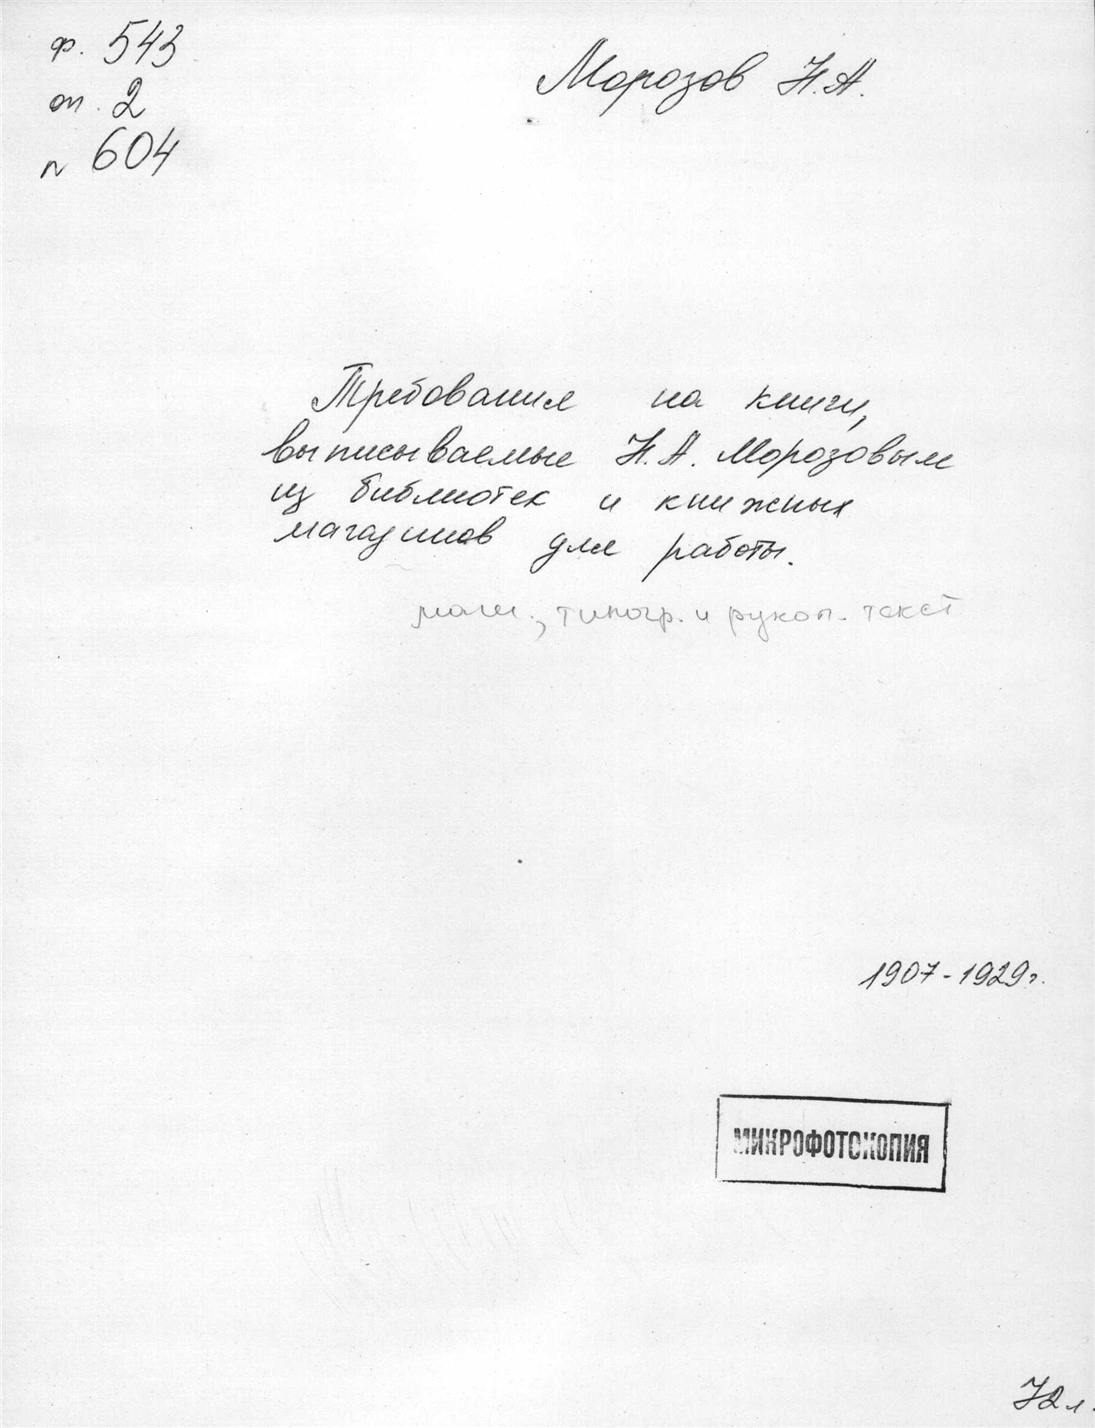 ф. 543
оп. 2
N 604
Морозов Н.А.
Требования на книги,
выписываемые Н.А. Морозовым
из библиотек и книжных
магазинов для работы.
маш., типогр. и рукоп. текст
1907-1929г.
МИКРОФОТОКОПИЯ
72 л.